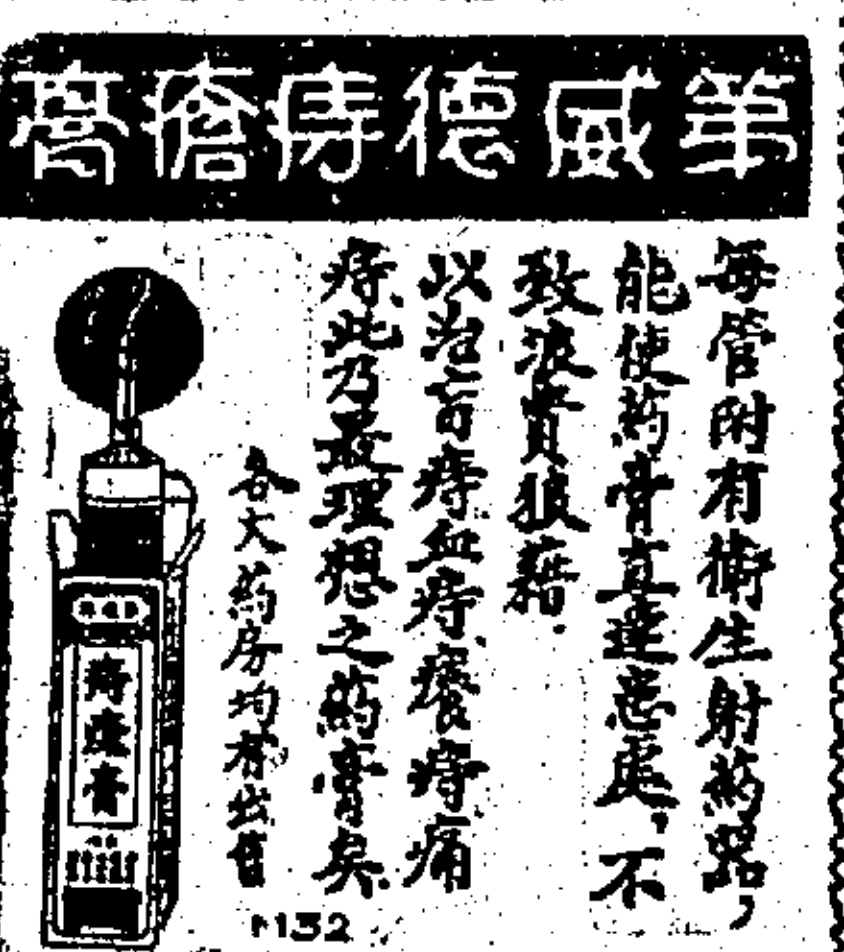 第威德痔瘡膏
每管附有衛生射葯器,
能使葯膏直達患處,不
致浪費狼藉.
以治盲痔血痔癢痔痛
痔,此乃最理想之葯膏矣.
各大葯房均有出售
痔瘡膏
M132